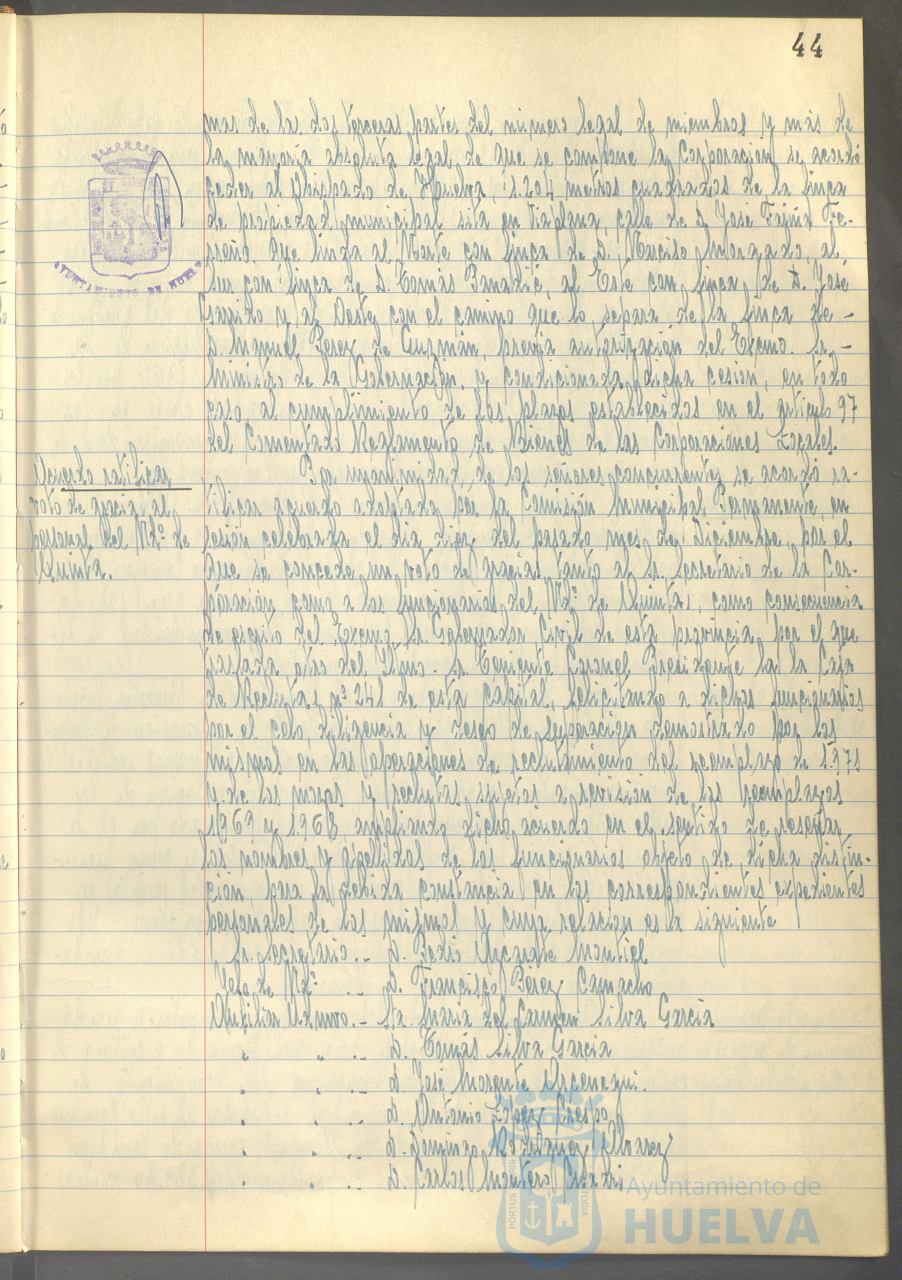 44
mas de las dos terceras partes del número legal de miembros y más de
la mayoría absoluta legal, de que se compone la Corporación se acordó
ceder al Obispado de Huelva, 1.204 metros cuadrados de la finca
de propiedad municipal sita en Viaplana, calle de D. José
que linda al Norte con finca de D. Narciso Morgado, al
Sur con finca de D. Tomás al Este con finca de D. José
Garrido y al Oeste con el camino que lo separa de la finca de -
D. Manuel Perez de Guzmán, previa autorización del Excmo. Sr. -
Ministro de la Gobernación, y condicionada dicha cesión, en todo
caso, al cumplimiento de los plazos establecidos en el artículo 97
del comentado Reglamento de Bienes de las Corporaciones Locales.
Acuerdo ratificar
voto de gracias al
personal del Ndº. de
Quintas.
Por unanimidad, de los señores concurrentes se acordó ra-
tificar acuerdo adoptado por la Comisión Municipal Permanente, en
sesión celebrada el día diez del pasado mes de Diciembre, por el
que se concede un voto de gracias tanto al Sr. Secretario de la Cor-
poración como a los funcionarios del Ndº. de Quintas, como consecuencia
de escrito del Excmo. Sr. Gobernador Civil de esta provincia, por el que
traslada otro del Iltmo. Sr. Teniente Coronel Presidente de la Caja
de Reclutas nº 241 de esta capital, felicitando a dichos funcionarios
por el celo, diligencia y deseo de superación demostrado por los
mismos en las operaciones de reclutamiento del reemplazo de 1.971
y de los mozos y reclutas sujetos a revisión de los reemplazos
1969 y 1968, ampliando dicho acuerdo en el sentido de reseñar,
los nombres y apellidos de los funcionarios objeto de dicha distin-
ción, para la debida constancia en los correspondientes expedientes
personales de los mismos y cuya relación es la siguiente
Sr. Secretario.- D. Pedro Montiel
Jefe de Ndº. .- D. Francisco Perez Camacho
Auxiliar Admvo.- Sta. María del Carmen Silva García
" " .- D. Tomás Silva García
" " .- D. José Morente
" " .- D. Antonio López Crespo
" " .- D. Domingo Rodríguez Alvarez
" " .- D. Carlos Montero
AYUNTAMIENTO DE HUELVA
Ayuntamiento de
HUELVA